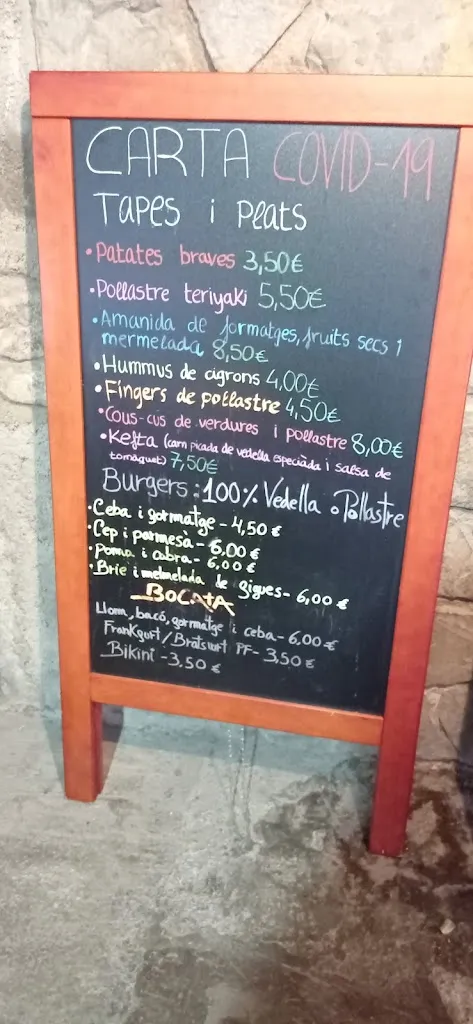 CARTA COVID-19
TAPES i PLATS
• Patates braves 3,50€
• Pollastre teriyaki 5,50€
• Amanida de formatges, fruits secs i
mermelada 8,50€
• Hummus de cigrons 4,00€
• Fingers de pollastre 4,50€
• Cous-cus de verdures i pollastre 8,00€
• Kefta (carn picada de vedella especiada i salsa de
tomaquet) 7,50€
Burgers: 100% Vedella o Pollastre
• Ceba i formatge - 4,50 €
• Cep i parmesà - 6,00 €
• Poma i cabra - 6,00 €
• Brie i melmelada de figues - 6,00 €
BOCATA
Llom, bacó, formatge i ceba - 6,00 €
Frankfurt/Bratwurt PF - 3,50 €
Bikini - 3,50 €